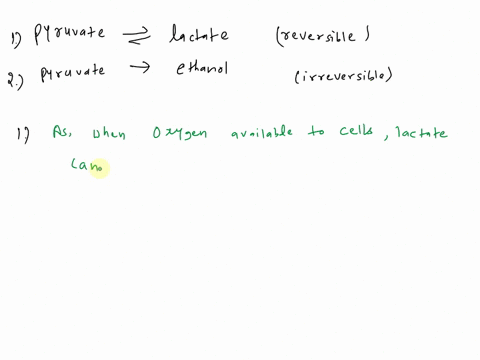 1) pyruvate ⇌ lactate (reversible)
2.) pyruvate → ethanol (irreversible)
1) As, when Oxygen available to cells, lactate
can